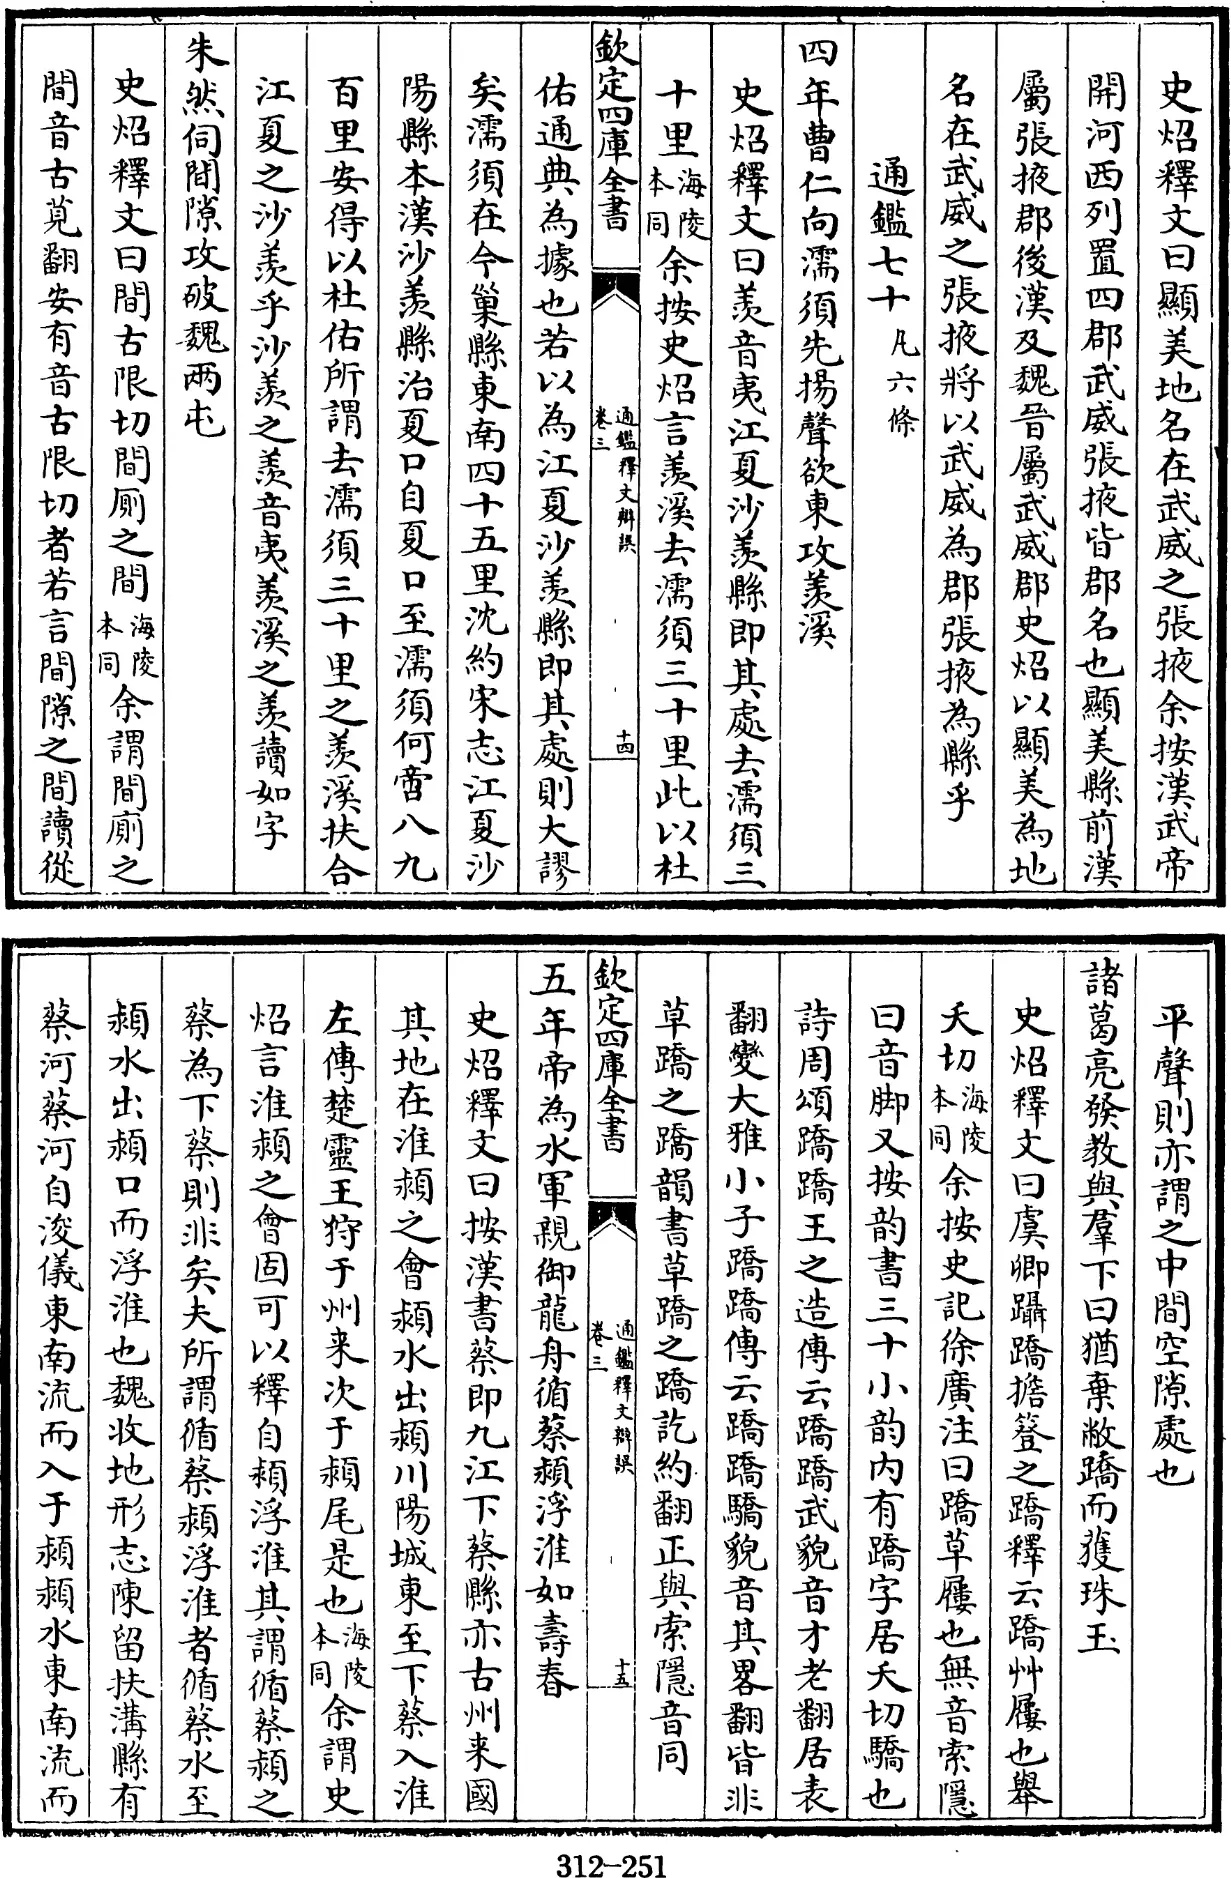 史炤釋文曰顯美地名在武威之張掖余按漢武帝
開河西列置四郡武威張掖皆郡名也顯美縣前漢
屬張掖郡後漢及魏晉屬武威郡史炤以顯美為地
名在武威之張掖將以武威為郡張掖為縣乎
通鑑七十 凡六條
四年曹仁向濡須先揚聲欲東攻羨溪
史炤釋文曰羨音夷江夏沙羨縣即其處去濡須三
十里海陵本同余按史炤言羨溪去濡須三十里此以杜
欽定四庫全書 通鑑釋文辯誤 卷三 十四
佑通典為據也若以為江夏沙羨縣即其處則大謬
矣濡須在今巢縣東南四十五里沈約宋志江夏沙
陽縣本漢沙羨縣治夏口自夏口至濡須何啻八九
百里安得以杜佑所謂去濡須三十里之羨溪扶合
江夏之沙羨乎沙羨之羨音夷羨溪之羨讀如字
朱然伺間隙攻破魏兩屯
史炤釋文曰間古限切間廁之間海陵本同余謂間廁之
間音古莧翻安有音古限切者若言間隙之間讀從
平聲則亦謂之中間空隙處也
諸葛亮發教與羣下曰猶棄敝蹻而獲珠玉
史炤釋文曰虞卿躡蹻擔簦之蹻釋云蹻艸屨也舉
夭切海陵本同余按史記徐廣注曰蹻草屨也無音索隱
曰音脚又按韵書三十小韵内有蹻字居夭切驕也
詩周頌蹻蹻王之造傳云蹻蹻武貌音才老翻居表
翻變大雅小子蹻蹻傳云蹻蹻驕貌音其畧翻皆非
草蹻之蹻韻書草蹻之蹻訖約翻正與索隱音同
欽定四庫全書 通鑑釋文辯誤 卷三 十五
五年帝為水軍親御龍舟循蔡潁浮淮如壽春
史炤釋文曰按漢書蔡即九江下蔡縣亦古州来國
其地在淮潁之會潁水出潁川陽城東至下蔡入淮
左傳楚靈王狩于州来次于潁尾是也海陵本同余謂史
炤言淮潁之會固可以釋自潁浮淮其謂循蔡潁之
蔡為下蔡則非矣夫所謂循蔡潁浮淮者循蔡水至
潁水出潁口而浮淮也魏收地形志陳留扶溝縣有
蔡河蔡河自浚儀東南流而入于潁潁水東南流而
312-251